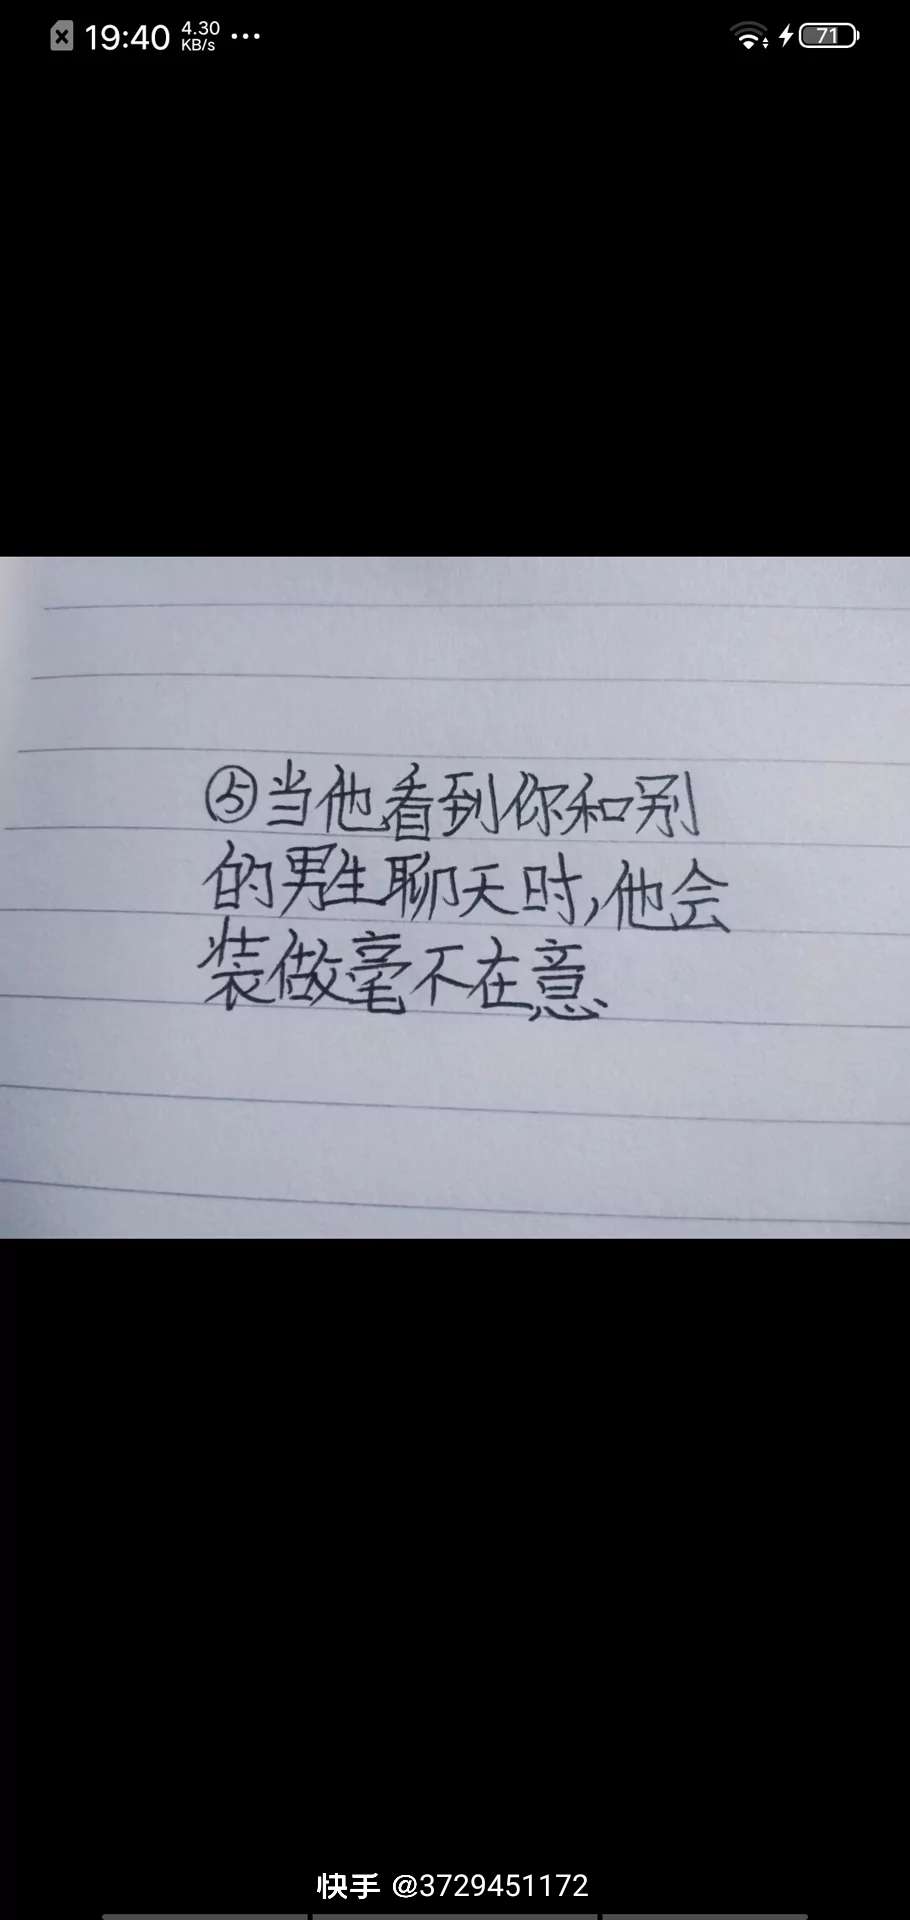 19:40 4.30 KB/s ... 71
⑤当他看到你和别
的男生聊天时,他会
装做毫不在意
快手 @3729451172